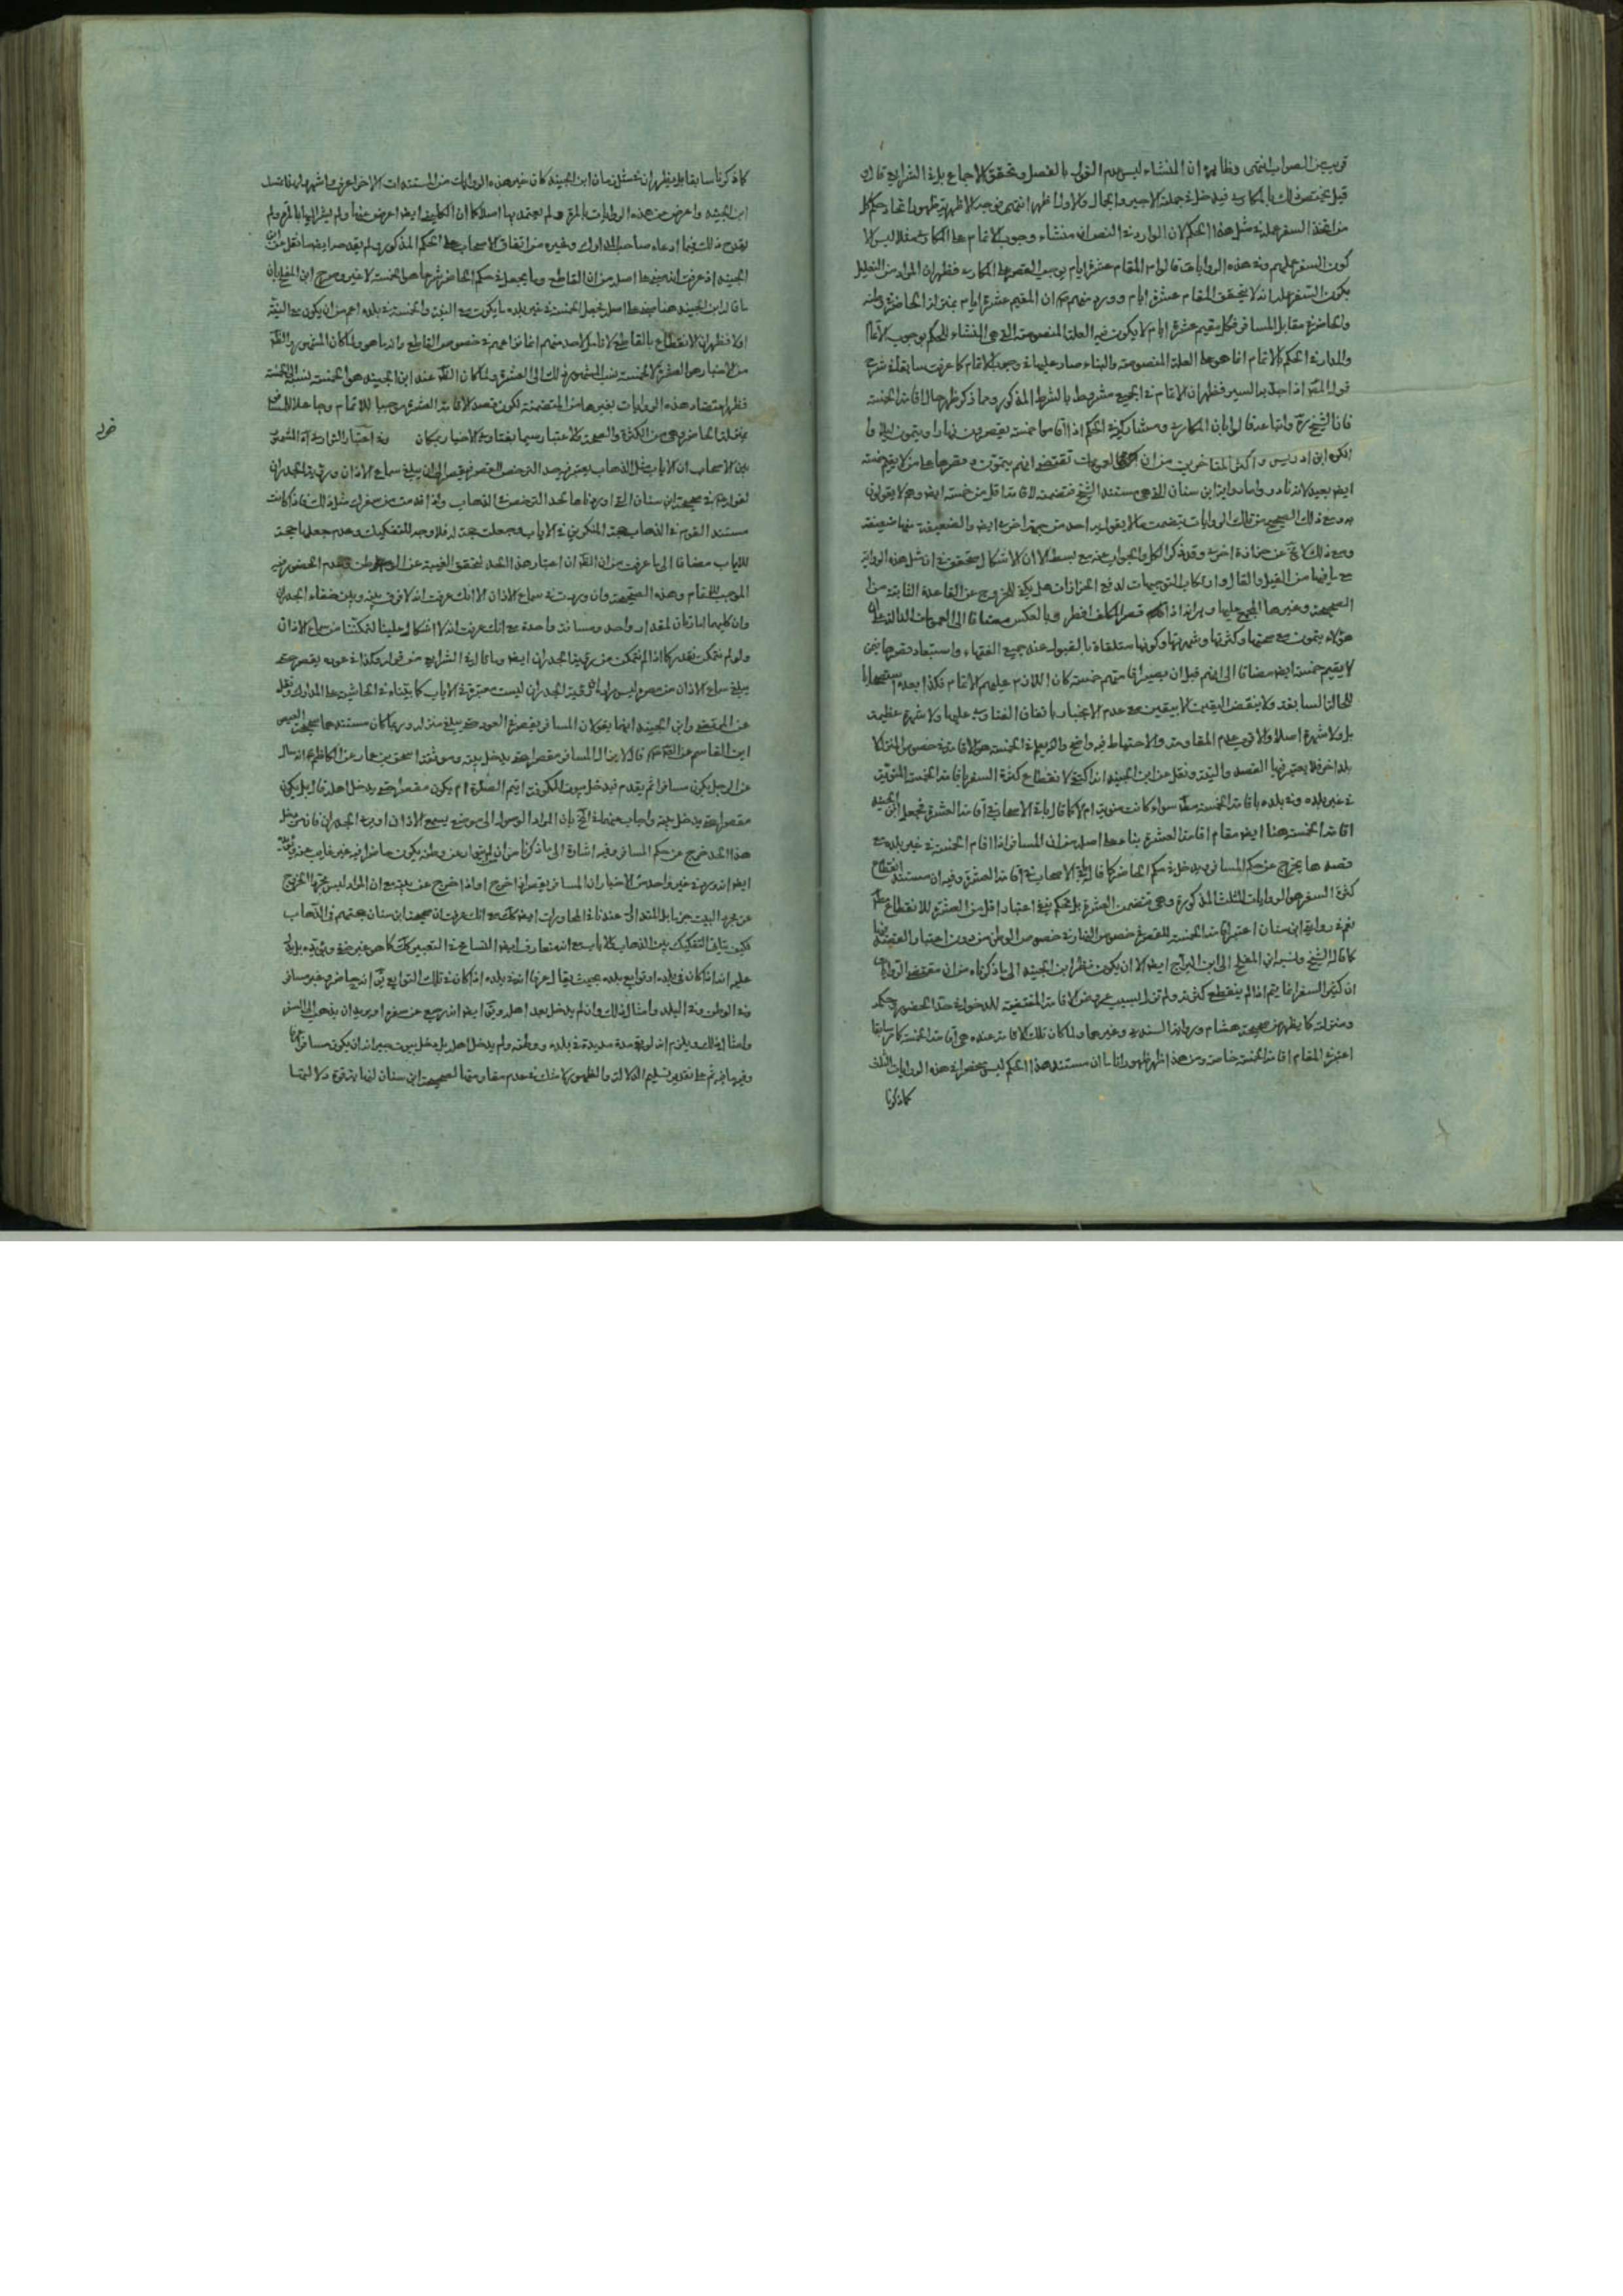 قريب من الصواب انتهى وظاهره ان المنشاء ليس عدم القول بالفصل وتحقق الاجماع بل في الشرايع قال
قيل يختص ذلك بالمكاري فيدخل في جملته الاجير والجمال والاول اظهر انتهى
من اتخذ السفر عمله مثل هذا الحكم لان الوارد في النص ان منشاء وجوب الاتمام على المكاري مثلا ليس الا
كون السفر عملهم وفي هذه الروايات قالوا ان المقام عشرة ايام يوجب القصر على المكاري فظهر ان المراد من التعليل
يكون السفر عمله انه لا يتحقق المقام عشرة ايام وورد منهم ان المقيم عشرة ايام بمنزلة الحاضر في وطنه
والحاضر في مقابل المسافر فكل مقيم عشرة ايام لا يكون فيه العلة المنصوصة التي هي المنشاء للحكم بوجوب الاتمام
والمدار في الحكم بالاتمام انما هو على العلة المنصوصة والبناء صار عليها في وجوب الاتمام كما عرفت سابقا في شرح
قول المص اذا جد به السير فظهر ان الاتمام في الجميع مشروط بالشرط المذكور ومما ذكر ظهر حال اقامة الخمسة
فان الشيخ ره واتباعه قالوا بان المكاري ومشاركيه في الحكم اذا اقاموا خمسة يقصرون نهارا ويتمون ليلا
انكره ابن ادريس واكثر المتاخرين من ان العمومات تقتضي انهم يتمون
ايض بعيد لانه نادر واما رواية ابن سنان التي هي مستند الشيخ فتضمنه لاقامة اقل من خمسة ايض وهم لا يقولون
به ومع ذلك الصحيح من تلك الروايات يتضمن ما لا يقول به احد من جهة اخرى ايض والضعيفة منها ضعيفة
ومع ذلك لا تخ عن حزازة اخرى وقد ذكر الكل والجواب عنه مع بسط الا ان الاشكال يتحقق في ان مثل هذه الرواية
مع ما فيها من القيل والقال وارتكاب التوجيهات لدفع الحزازات هل يمكن الخروج عن القاعدة الثابتة من
الصحيحة وغيرها المجمع عليها وهي انه اذا قصر المكلف افطر وبالعكس مضافا الى العمومات الدالة على ان
هؤلاء يتمون مع صحتها وكثرتها وشهرتها وكونها متلقاة بالقبول عند جميع الفقهاء واستبعاد
لا يقيم خمسة ايض مضافا الى انهم قبل ان يصير اقامتهم خمسة كان اللازم عليهم الاتمام فكذا بعده استصحابا
للحالة السابقة ولا ينقض اليقين الا بيقين مع عدم الانجبار باتفاق الفتاوي عليها ولا شهرة عظيمة
بل ولا شهرة اصلا والاقوى عدم المقاومة والاحتياط فيه واضح
بلد اخر فلا يعتبر فيها القصد والنية ونقل عن ابن الجنيد انه اكتفى لانقطاع كثرة السفر باقامة الخمسة المنوية
في غير بلده وفي بلده باقامة الخمسة مط سواء كانت منوية ام لا كما قال باقي الاصحاب في اقامة العشرة فجعل ابن الجنيد
اقامة الخمسة هنا ايض مقام اقامة العشرة بناء على اصله من ان المسافر اذا اقام الخمسة في غير بلده مع
قصدها يخرج عن حكم المسافر ويدخل في حكم الحاضر كما قال باقي الاصحاب في اقامة العشرة وفيه ان مستند انقطاع
كثرة السفر هو الروايات الثلث المذكورة وهي تتضمن العشرة بل تحكم بنفي اعتبار اقل من العشرة للانقطاع
نعم في رواية ابن سنان اعتبر اقامة الخمسة للقصر في خصوص النهار
كما قاله الشيخ ونسبه ابن المفلح الى ابن البراج ايض الا ان يكون نظر ابن الجنيد الى ما ذكرناه من ان مقتضى الروايات
ان كثير السفر انما يتم اذا لم ينقطع كثرته ولم تزل بسبب عروض الاقامة المقتضية للدخول في حد الحضور وحكمه
ومنزلته كما يظهر من صحيحة هشام ورواية السندي وغيرهما ولما كان تلك الاقامة عنده هي اقامة الخمسة كما مر سابقا
اعتبر في المقام اقامة الخمسة خاصة ومن هذا ظهر ظهورا تاما ان مستند هذا الحكم ليس بمنحصر في هذه الروايات الثلث
كما ذكرنا
كما ذكرنا سابقا بل يظهر ان في مثل زمان ابن الجنيد كان غير هذه الروايات من المستندات الاخر اعرف واشهر
ابن الجنيد واعرض عن هذه الروايات بالمرة ولم يعتمد بها اصلا كما ان الكليني ايض اعرض عنها ولم يشر اليها بالمرة ولم
يقدح ذلك فيما ادعاه صاحب المدارك وغيره من اتفاق الاصحاب على الحكم المذكور ولم يقدحه ايض ما نقل عن ابن
الجنيد اذ عرفت انه مبني على اصله من ان القاطع وما يجعل في حكم الحاضر شرعا هو الخمسة لا غير وصرح ابن المفلح بان
ما قال ابن الجنيد هنا مبني على اصله فجعل الخمسة في غير بلده ما يكون مع النية والخمسة في بلده اعم من ان يكون مع النية
ام لا فظهر ان الانقطاع بالقاطع لا تامل لاحد منهم انما نزاعهم في خصوص القاطع وانه ما هو ولما كان المشهور والظاهر
من الاخبار هو العشرة لا الخمسة نسب المشهور ذلك الى العشرة ولما كان الظاهر عند ابن الجنيد هو الخمسة نسبه الى الخمسة
فظهر اعتضاد هذه الروايات بغيرها من المتضمنة لكون قصد الاقامة العشرة موجبا للاتمام وجاعلا للمسافر
بمنزلة الحاضر وهي من الكثرة والصحة والاعتبار سيما بفتاوى الاخيار بمكان وفي اعتبار التواري اه المشهور
بين الاصحاب ان الاياب مثل الذهاب يعتبر فيه حد الترخص المقصر فيقصر الى ان يبلغ سماع الاذان ورؤية الجدران
لقوله ع في صحيحة ابن سنان التي اوردناها لحد الترخص في الذهاب واذا قدمت من سفرك مثل ذلك فاذا كانت
مستند القوم في الذهاب هجة المنكورين في الاياب وجعلت حجة له فلا وجه للتفكيك وعدم جعلها حجة
للاياب مضافا الى ما عرفت من ان الظاهر ان اعتبار هذا الحد لتحقق الغيبة عن الوطن وعدم الحضور فيه
الموجب للمقام وهذه الصحيحة وان وردت في سماع الاذان الا انك عرفت انه لا فرق بينه وبين خفاء الجدران
وان كليهما امارتان لمقدار واحد ومسافة واحدة مع انك عرفت انه لا اشكال علينا لتمكننا من سماع الاذان
ولو لم نتمكن نقدر كما اذا لم نتمكن من رؤية الجدران ايض وما قال في الشرايع من قوله وكذا في عوده يقصر حتى
يبلغ سماع الاذان من مصره ليس مراده ان رؤية الجدران ليست معتبرة في الاياب كما بيناه في الحاشية على المدارك ونقل
عن المرتضى وابن الجنيد انهما يقولان المسافر يقصر في العود حتى يبلغ منزله وربما كان مستندهما صحيحة العيص
ابن القاسم عن الصادق ع قال لا يزال المسافر مقصرا حتى يدخل بيته وموثقة اسحق بن عمار عن الكاظم ع انه سأله
عن الرجل يكون مسافرا ثم يقدم فيدخل بيوت الكوفة ايتم الصلوة ام يكون مقصرا حتى يدخل اهله قال بل يكون
مقصرا حتى يدخل بيته واجاب عنهما في المخ بان المراد الوصول الى موضع يسمع الاذان او يرى الجدران فان من وصل
هذا الحد خرج عن حكم المسافر وفيه اشارة الى ما ذكرنا من ان لم يتوار عن وطنه يكون حاضرا فيه غير غايب عنه
ايض انه ورد في غير واحد من الاخبار ان المسافر يقصر اذا خرج او اذا خرج عن بيته مع ان المراد ليس مجرد الخروج
عن مجرد البيت جزما بل المتداول عندنا في المحاورات ايض كك مع انك عرفت ان صحيحة ابن سنان حجتهم في الذهاب
فكيف يتاتى التفكيك بين الذهاب والاياب مع انه متعارف ايض التسامح في التعبير كك كما هو غير خفي ويؤيده بل يدل
عليه انه اذا كان في بلده او توابع بلده بحيث يقال عرفا انه في بلده اذا كان في تلك التوابع يق انه حاضر وغير مسافر
وفي الوطن وفي البلد وامثال ذلك وان لم يدخل بعد اهله ويق ايض انه رجع عن سفره او يريد ان يذهب الى السفر
وامثال ذلك ويلزم انه لو بقي مدة مديدة في بلده ووطنه ولم يدخل اهله بل دخل بيوت جيرانه ان يكون مسافرا
وفيه ما فيه ثم على تقدير تسليم الدلالة والظهور لا شك في عدم مقاومتهما لصحيحة ابن سنان لغاية قوة دلالتها
قوله